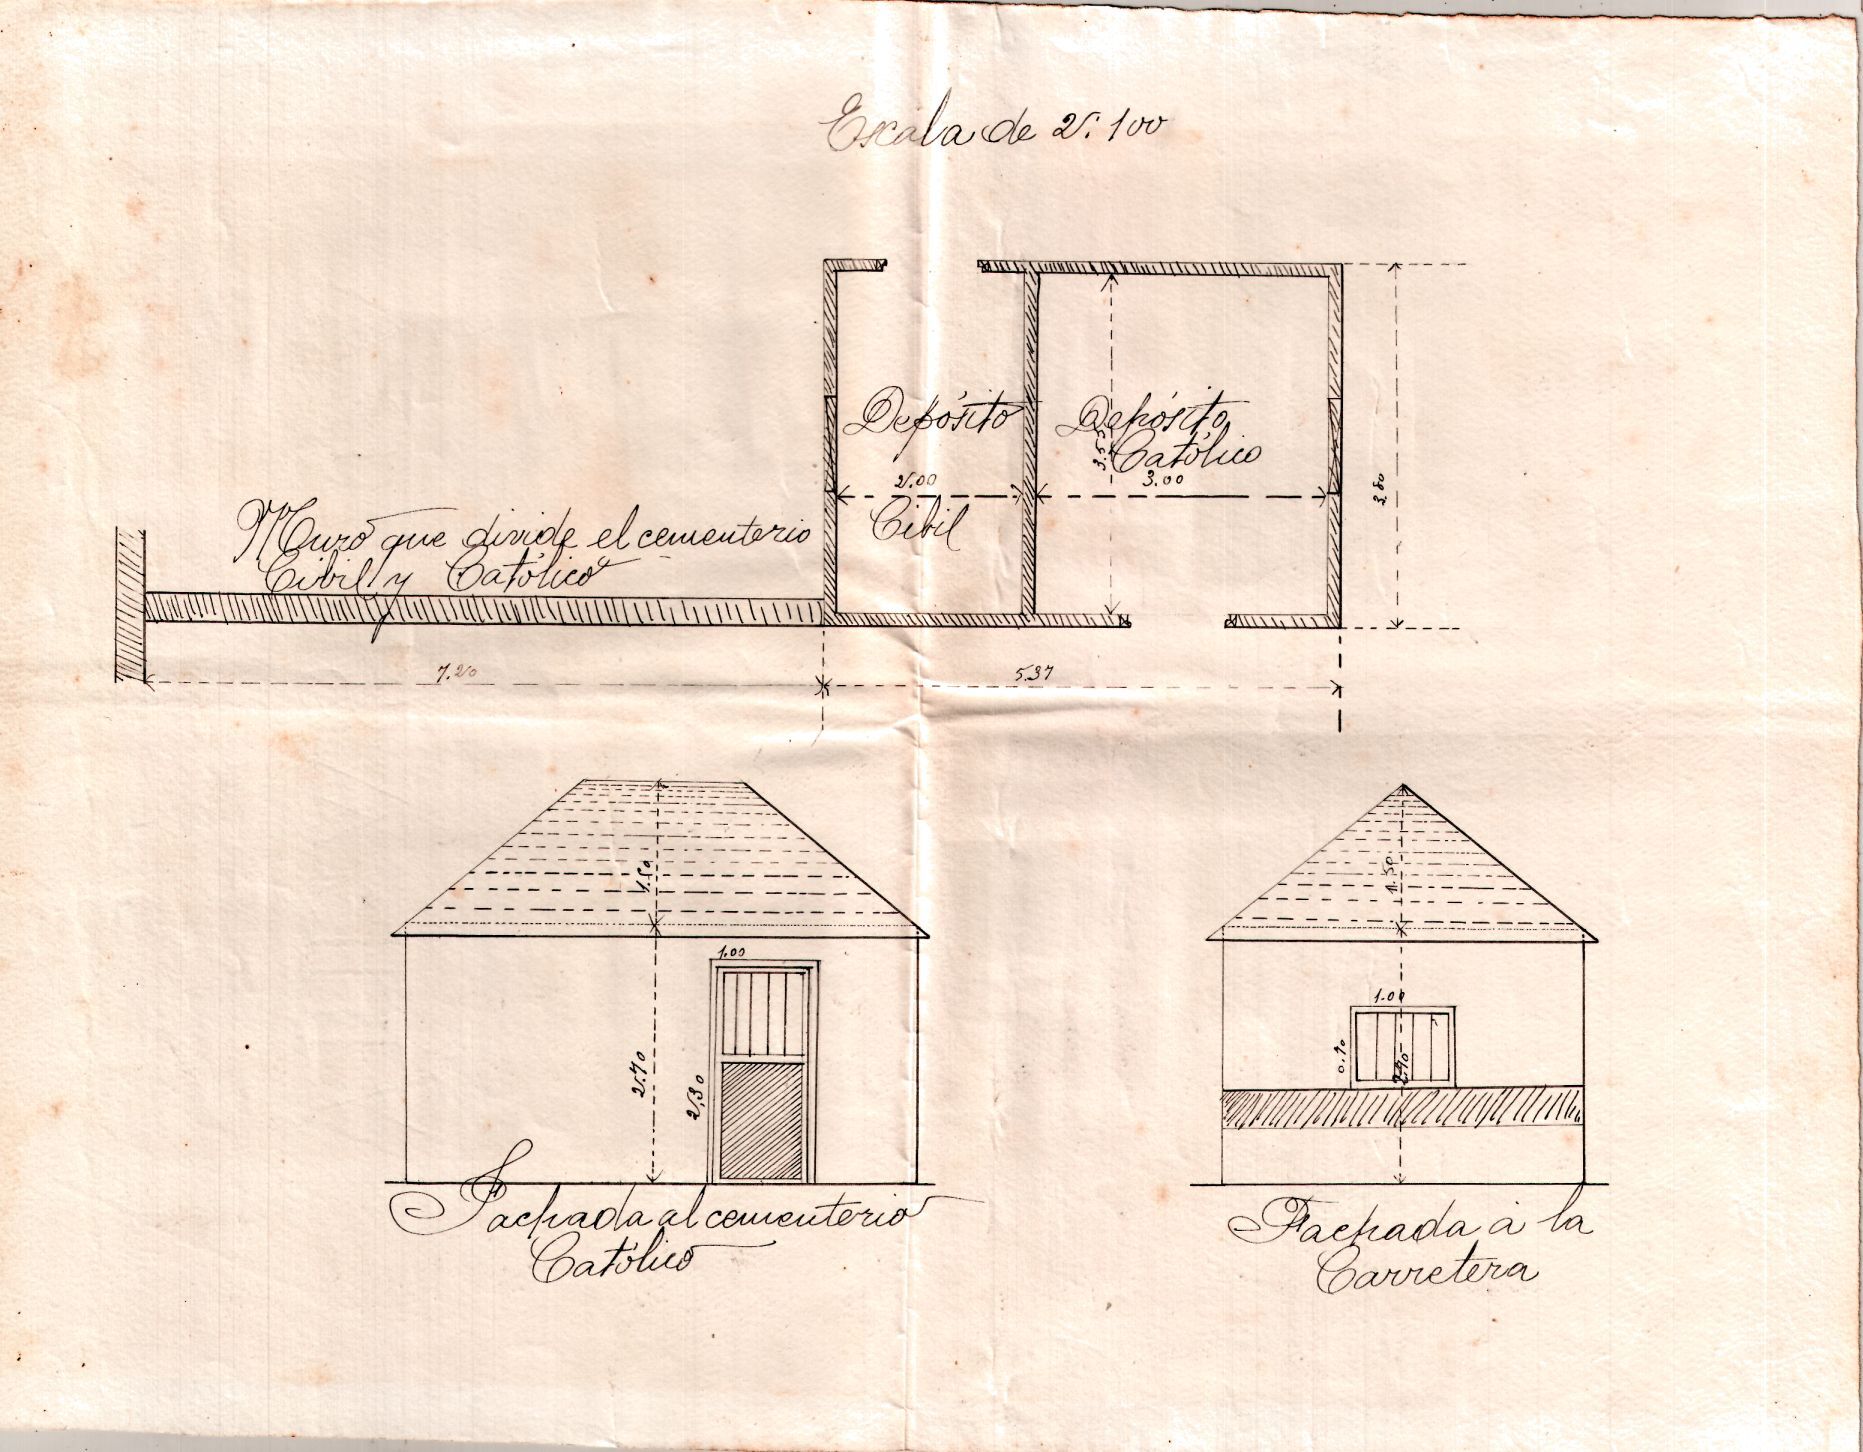 Escala de 2:100
Depósito
Cibil
2.00
Depósito
Católico
3.55
3.00
3.80
Muro que divide el cementerio
Cibil y Católico
7.20
5.37
1.50
1.00
2.70
2,30
Fachada al cementerio
Católico
1.50
1.00
0.70
2.70
Fachada á la
Carretera